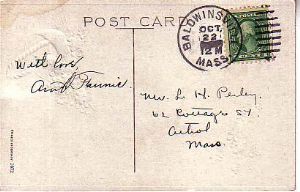 POST CARD
BALDWINSV
OCT
22
12 M
MASS.
With love,
Aunt Fannie.
Mr. L. H. Perley
62 Cottage St
Athol
Mass.